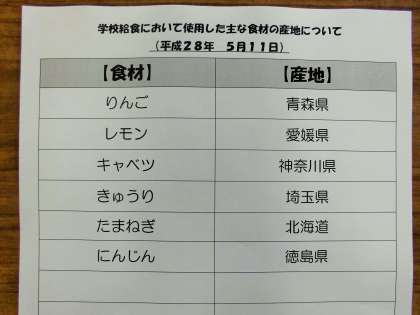 学校給食において使用した主な食材の産地について
(平成28年 5月11日)
【食材】 【産地】
りんご 青森県
レモン 愛媛県
キャベツ 神奈川県
きゅうり 埼玉県
たまねぎ 北海道
にんじん 徳島県